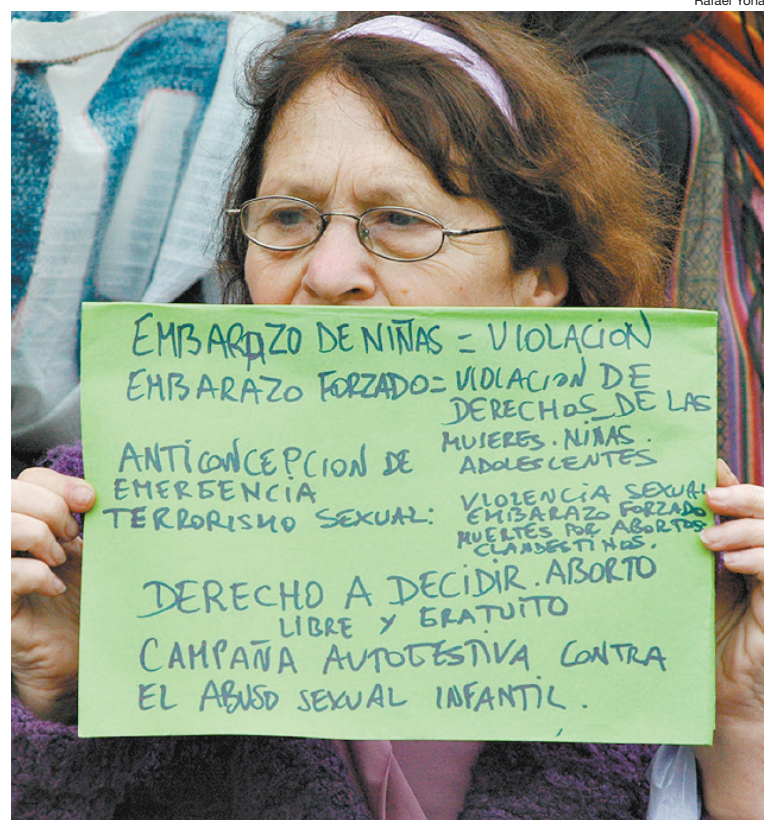 Rafael Yoha
EMBARAZO DE NIÑAS = VIOLACION
EMBARAZO FORZADO = VIOLACION DE
DERECHOS DE LAS
MUJERES. NIÑAS.
ADOLESCENTES
ANTICONCEPCION DE
EMERGENCIA
TERRORISMO SEXUAL:
VIOLENCIA SEXUAL
EMBARAZO FORZADO
MUERTES POR ABORTOS
CLANDESTINOS.
DERECHO A DECIDIR. ABORTO
LIBRE Y GRATUITO
CAMPAÑA AUTOGESTIVA CONTRA
EL ABUSO SEXUAL INFANTIL.